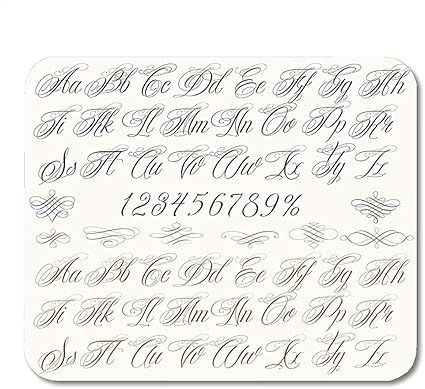 Aa Bb Cc Dd Ee Ff Gg Hh
Ii Kk Ll Mm Nn Oo Pp Rr
Ss Tt Uu Vv Ww Xx Yy Zz
123456789%
Aa Bb Cc Dd Ee Ff Gg Hh
Ii Kk Ll Mm Nn Oo Pp Rr
Ss Tt Uu Vv Ww Xx Yy Zz